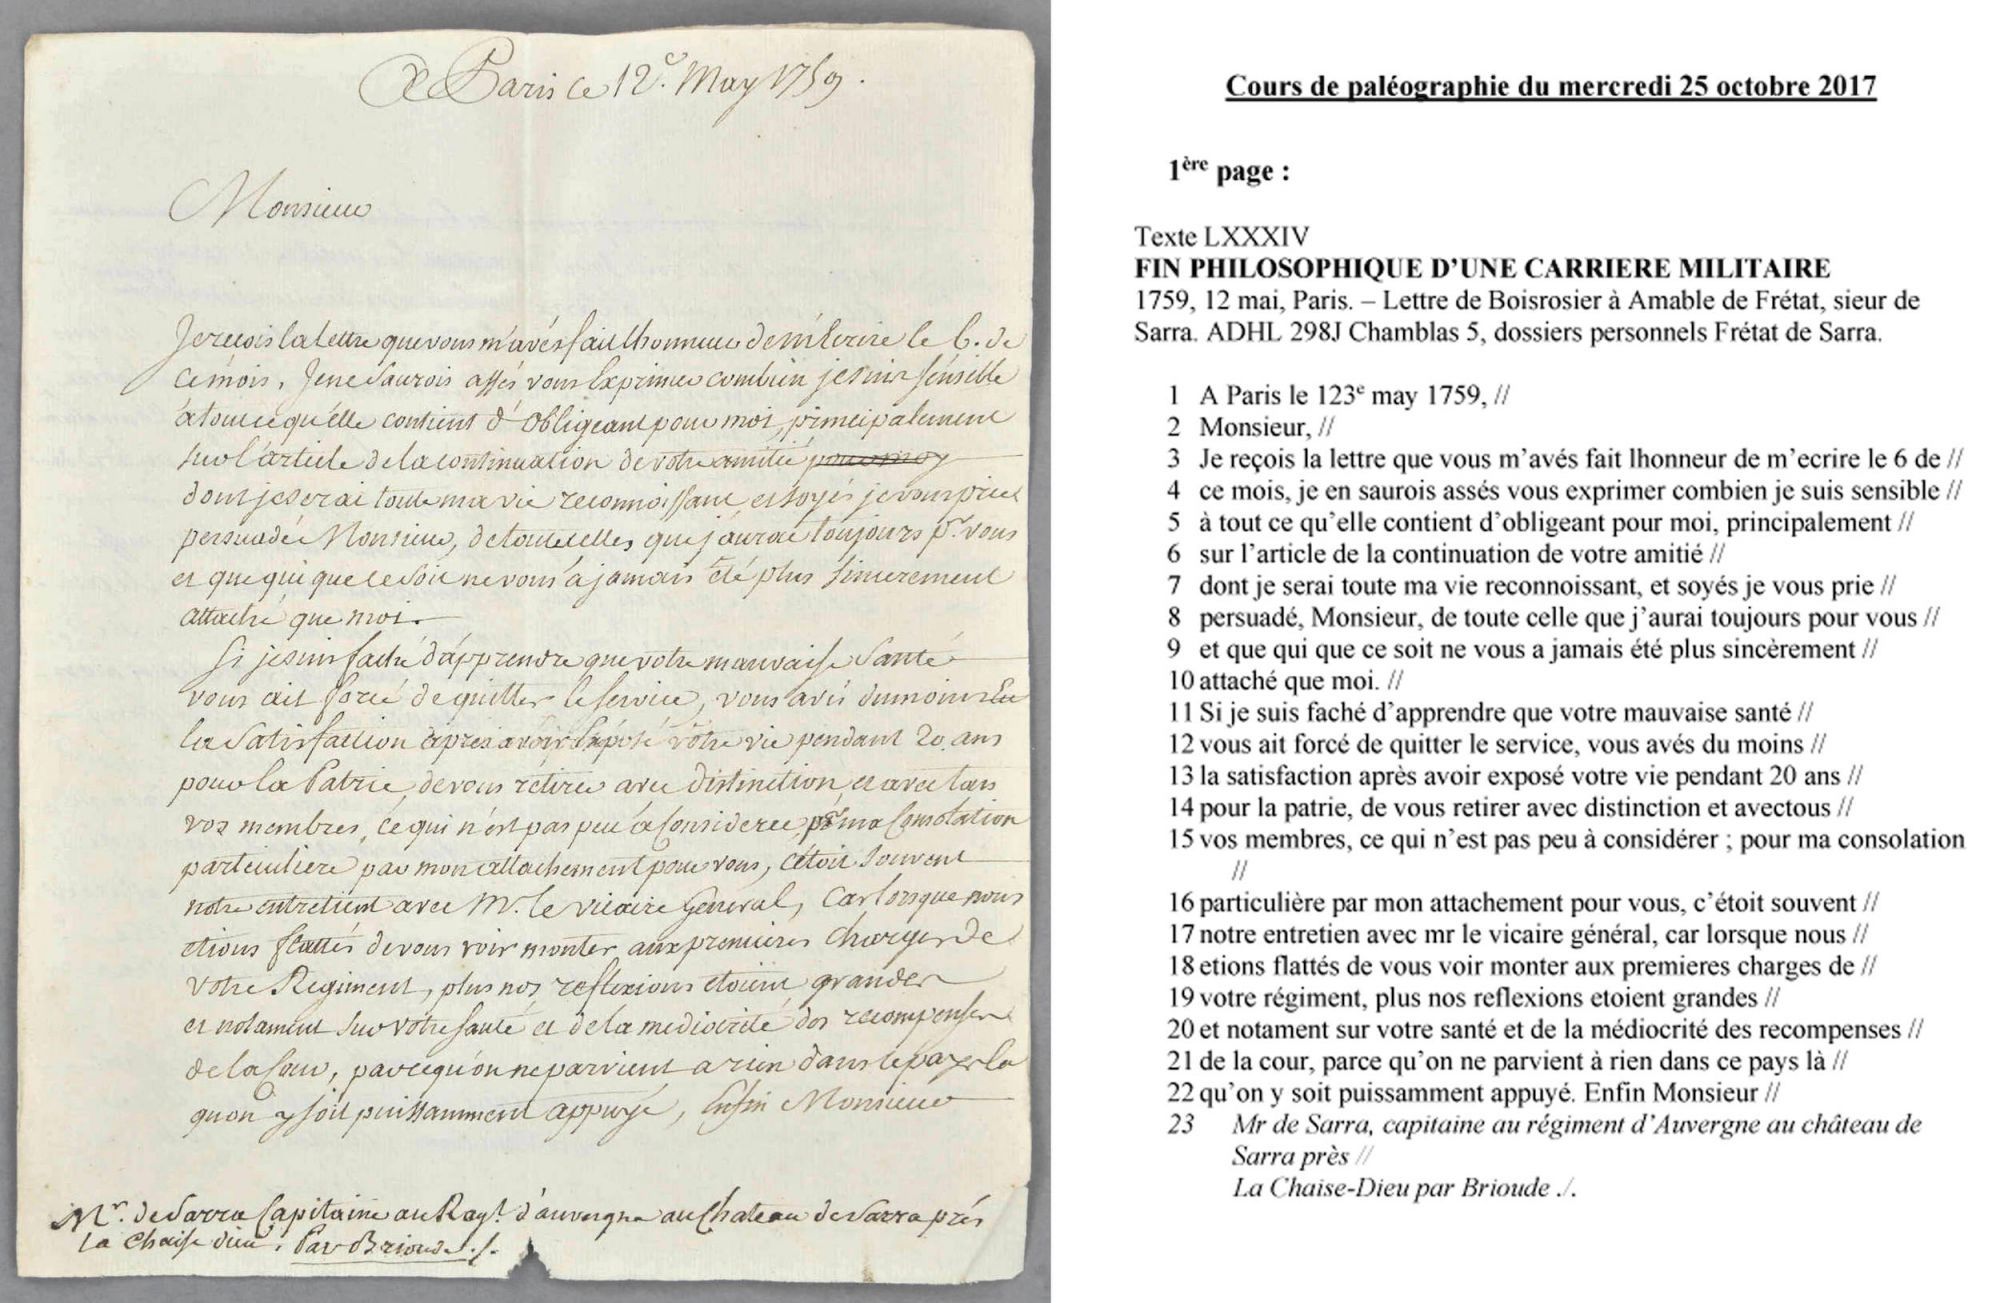 A Paris ce 12e. May 1759.
Monsieur
Je reçois la lettre que vous m'avés fait lhonneur de m'Ecrire le 6. de
ce mois, Je ne Saurois assés vous Exprimer combien je suis sénsible
à tout ce qu'elle contient d'Obligeant pour moi, principalement
sur l'article de la continuation de votre amitié pour moy
dont je serai toute ma vie reconnoissant, et soyés je vous prie
persuadé Monsieur, de toute celles que j'aurai toujours pr. vous
et que qui que ce soit ne vous a jamais été plus sincerement
attaché que moi.
Si je suis faché d'apprendre que votre mauvaise Santé
vous ait forcé de quitter le service, vous avés du moins Eu
la Satisfaction après avoir Exposé votre vie pendant 20. ans
pour la Patrie, de vous retirer avec distinction et avec tous
vos membres, ce qui n'est pas peu à Considerer, pr. ma Consolation
particuliere par mon attachement pour vous, c'étoit Souvent
notre entretient avec Mr. le vicaire General, Car lorsque nous
etions flattés de vous voir monter aux premieres Charges de
votre Regiment, plus nos reflexions etoient grandes
et notament sur votre santé et de la mediocrité des recompenses
de la Cour, parcequ'on ne parvient a rien dans ce pays la
quon y soit puissamment appuyé, Enfin Monsieur
Mr. de Sarra Capitaine au Regt. d'auvergne au Chateau de Sarra prés
la Chaise dieu, Par Brioude ./.
Cours de paléographie du mercredi 25 octobre 2017
1ère page :
Texte LXXXIV
FIN PHILOSOPHIQUE D'UNE CARRIERE MILITAIRE
1759, 12 mai, Paris. – Lettre de Boisrosier à Amable de Frétat, sieur de
Sarra. ADHL 298J Chamblas 5, dossiers personnels Frétat de Sarra.
1 A Paris le 123e may 1759, //
2 Monsieur, //
3 Je reçois la lettre que vous m'avés fait lhonneur de m'ecrire le 6 de //
4 ce mois, je en saurois assés vous exprimer combien je suis sensible //
5 à tout ce qu'elle contient d'obligeant pour moi, principalement //
6 sur l'article de la continuation de votre amitié //
7 dont je serai toute ma vie reconnoissant, et soyés je vous prie //
8 persuadé, Monsieur, de toute celle que j'aurai toujours pour vous //
9 et que qui que ce soit ne vous a jamais été plus sincèrement //
10 attaché que moi. //
11 Si je suis faché d'apprendre que votre mauvaise santé //
12 vous ait forcé de quitter le service, vous avés du moins //
13 la satisfaction après avoir exposé votre vie pendant 20 ans //
14 pour la patrie, de vous retirer avec distinction et avectous //
15 vos membres, ce qui n'est pas peu à considérer ; pour ma consolation
//
16 particulière par mon attachement pour vous, c'étoit souvent //
17 notre entretien avec mr le vicaire général, car lorsque nous //
18 etions flattés de vous voir monter aux premieres charges de //
19 votre régiment, plus nos reflexions etoient grandes //
20 et notament sur votre santé et de la médiocrité des recompenses //
21 de la cour, parce qu'on ne parvient à rien dans ce pays là //
22 qu'on y soit puissamment appuyé. Enfin Monsieur //
23 Mr de Sarra, capitaine au régiment d'Auvergne au château de
Sarra près //
La Chaise-Dieu par Brioude ./.